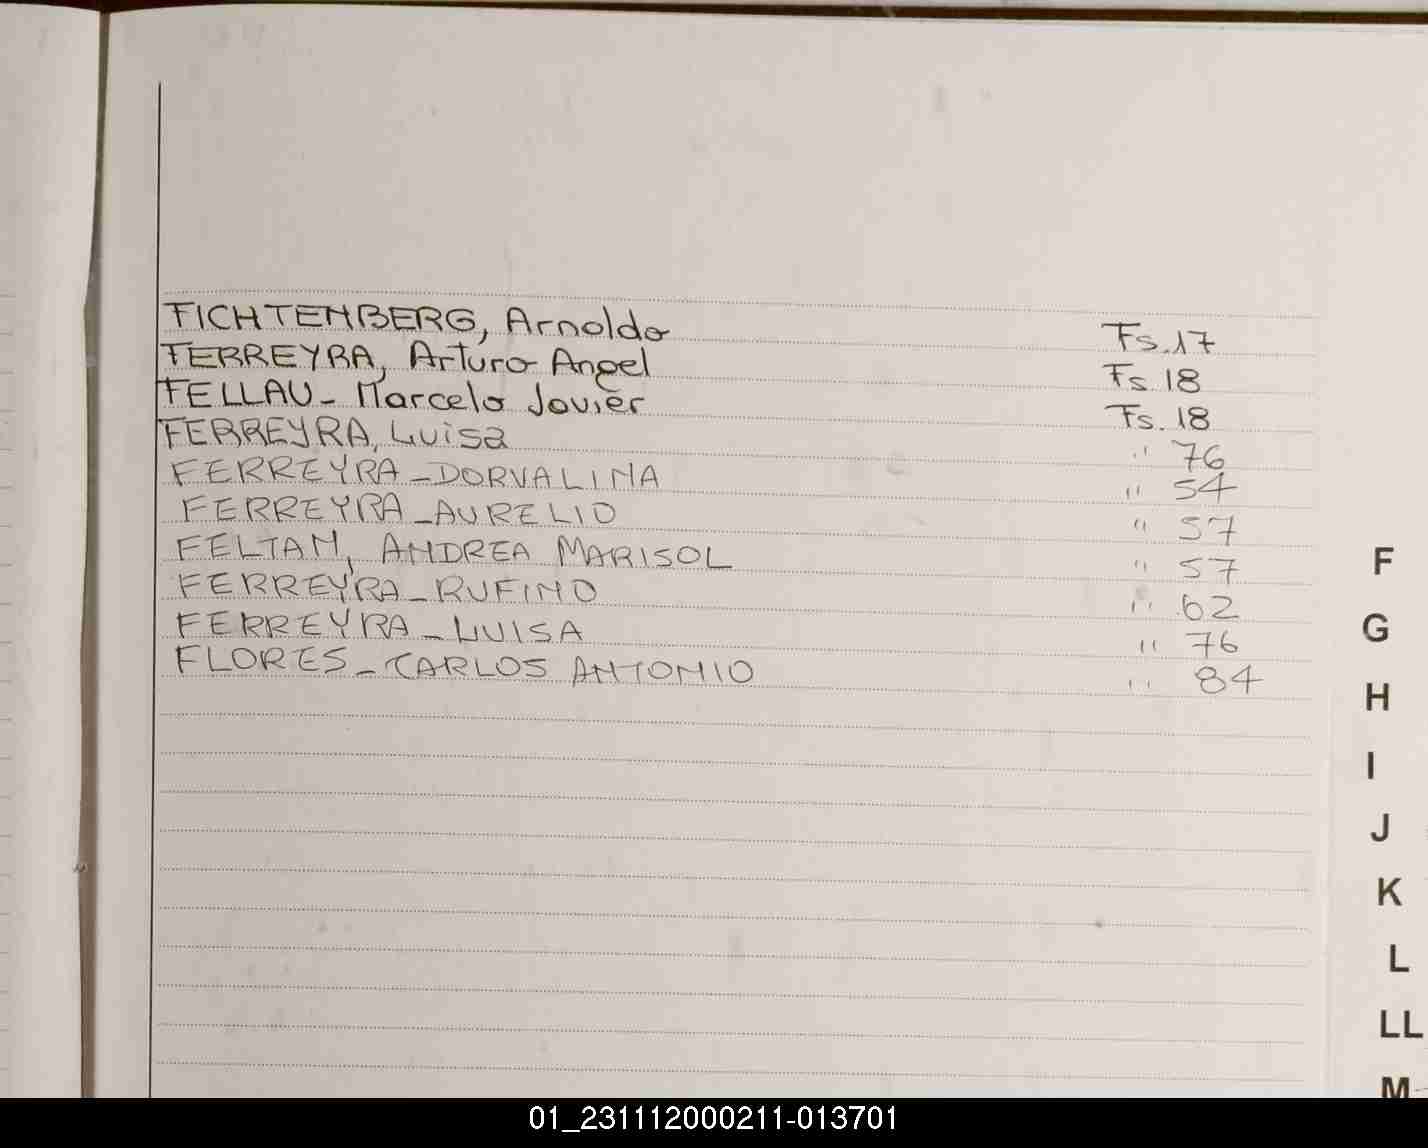 FICHTENBERG, Arnoldo Fs.17
FERREYRA, Arturo Angel Fs.18
FELLAU - Marcelo Javier Fs.18
FERREYRA, Luisa " 76
FERREYRA - DORVALINA " 54
FERREYRA - AURELIO " 57
FELTAN, ANDREA MARISOL " 57
FERREYRA - RUFINO " 62
FERREYRA - LUISA " 76
FLORES - CARLOS ANTONIO " 84
F
G
H
I
J
K
L
LL
M
01_231112000211-013701